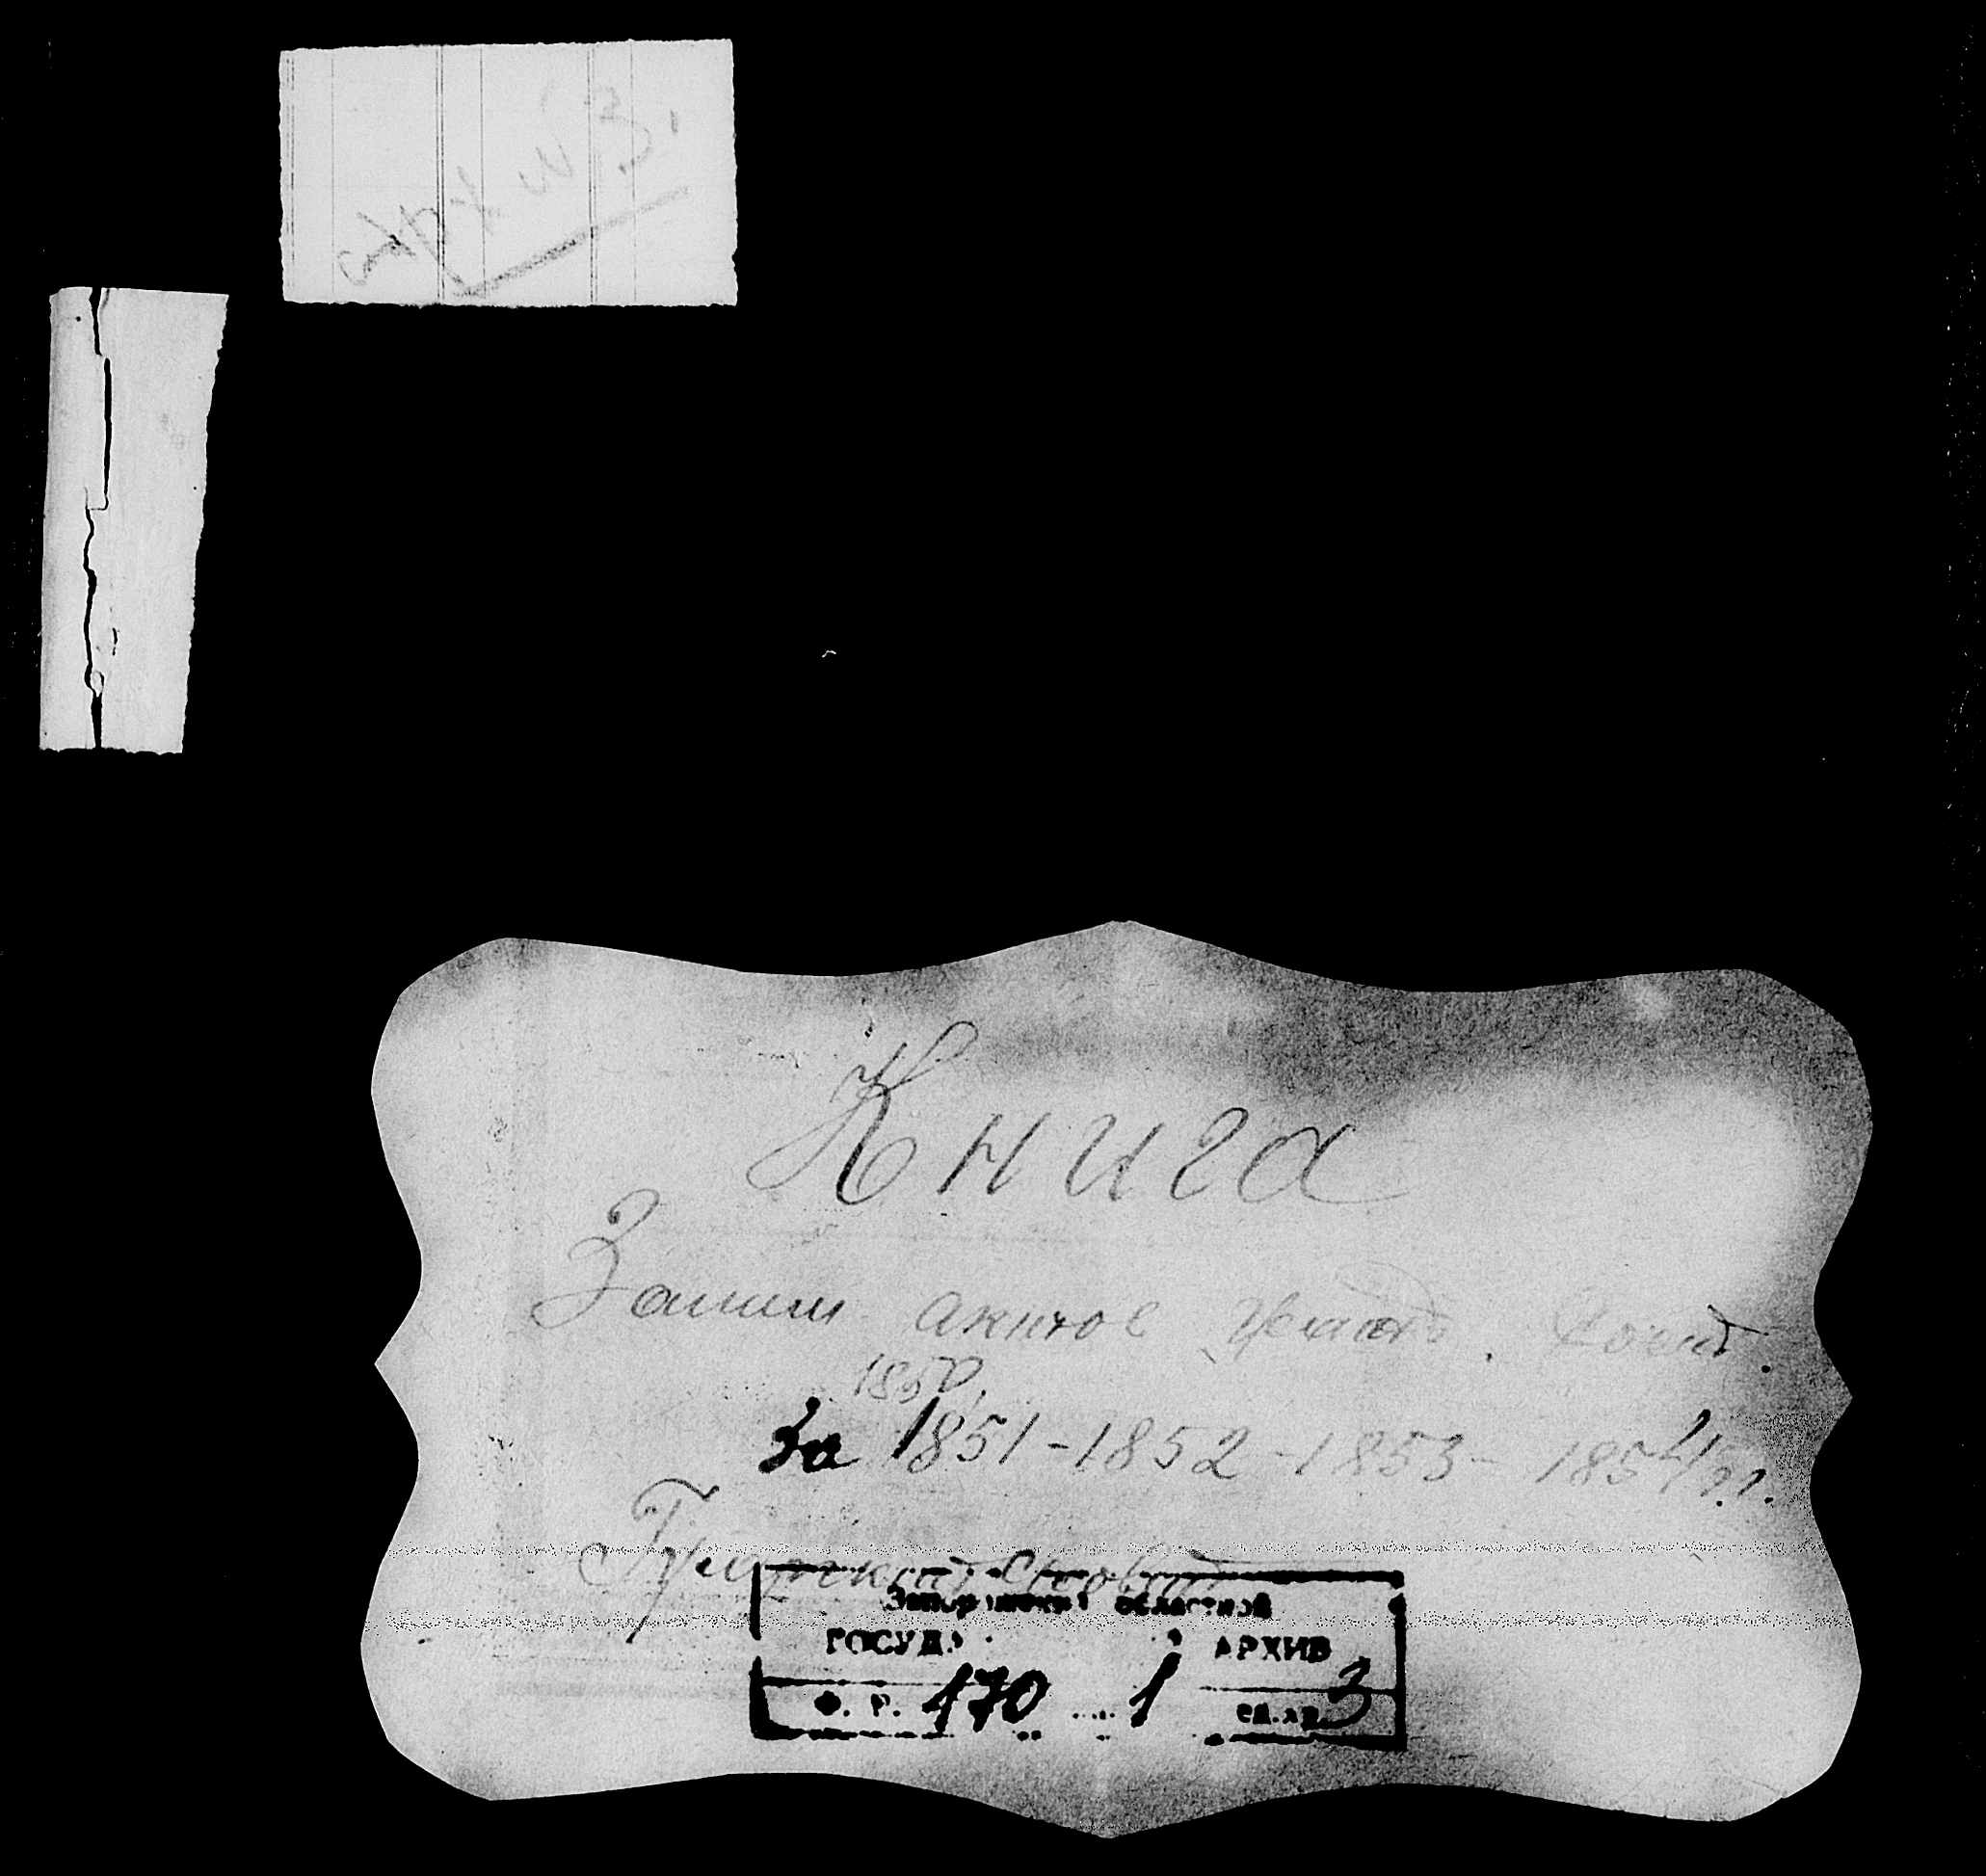 связка № 3.
Книга
Записи актов гражд. сост.
1850,
За 1851-1852-1853-1854 гг.
Запорожский областной
ГОСУД. АРХИВ
Ф. Р. 170 1 ед. хр. 3